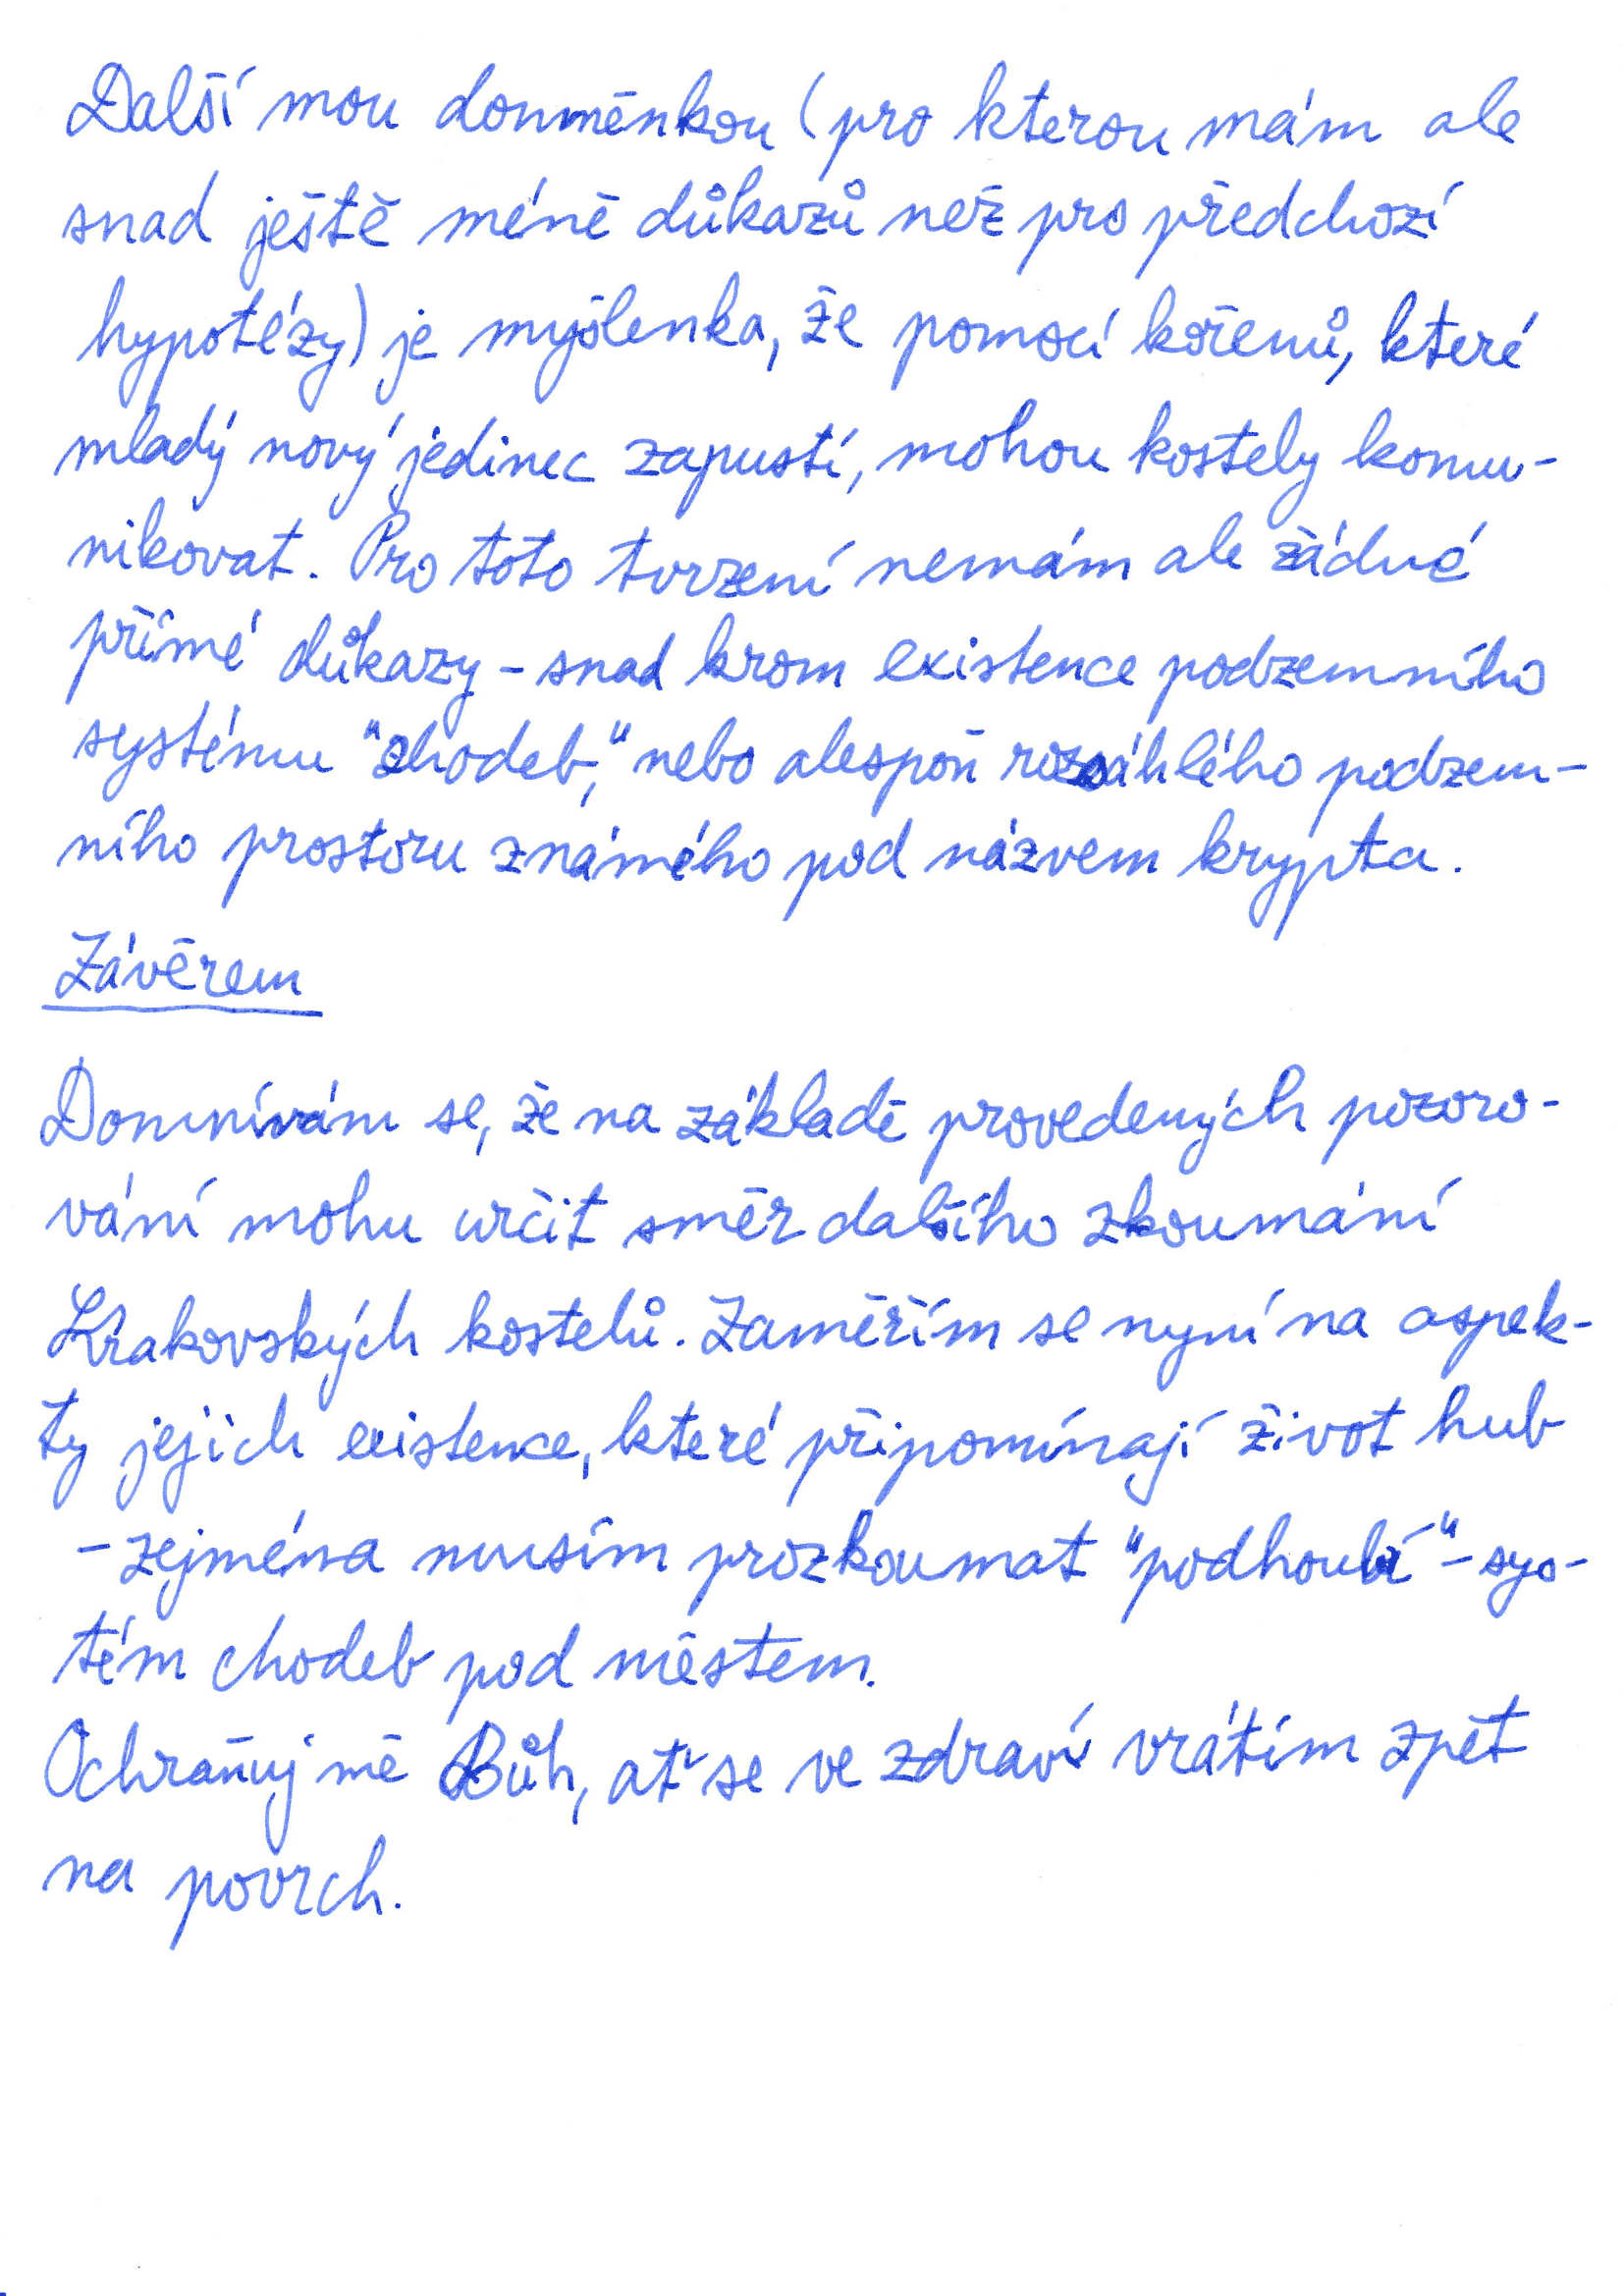 Další mou domněnkou (pro kterou mám ale
snad ještě méně důkazů než pro předchozí
hypotézy) je myšlenka, že pomocí kořenů, které
mladý nový jedinec zapustí, mohou kostely komu-
nikovat. Pro toto tvrzení nemám ale žádné
přímé důkazy - snad krom existence podzemního
systému "chodeb," nebo alespoň rozsáhlého podzem-
ního prostoru známého pod názvem krypta.
Závěrem
Domnívám se, že na základě provedených pozoro-
vání mohu určit směr dalšího zkoumání
Krakovských kostelů. Zaměřím se nyní na aspek-
ty jejich existence, které připomínají život hub
- zejména musím prozkoumat "podhoubí" - sys-
tém chodeb pod městem.
Ochraňuj mě Bůh, ať se ve zdraví vrátím zpět
na povrch.